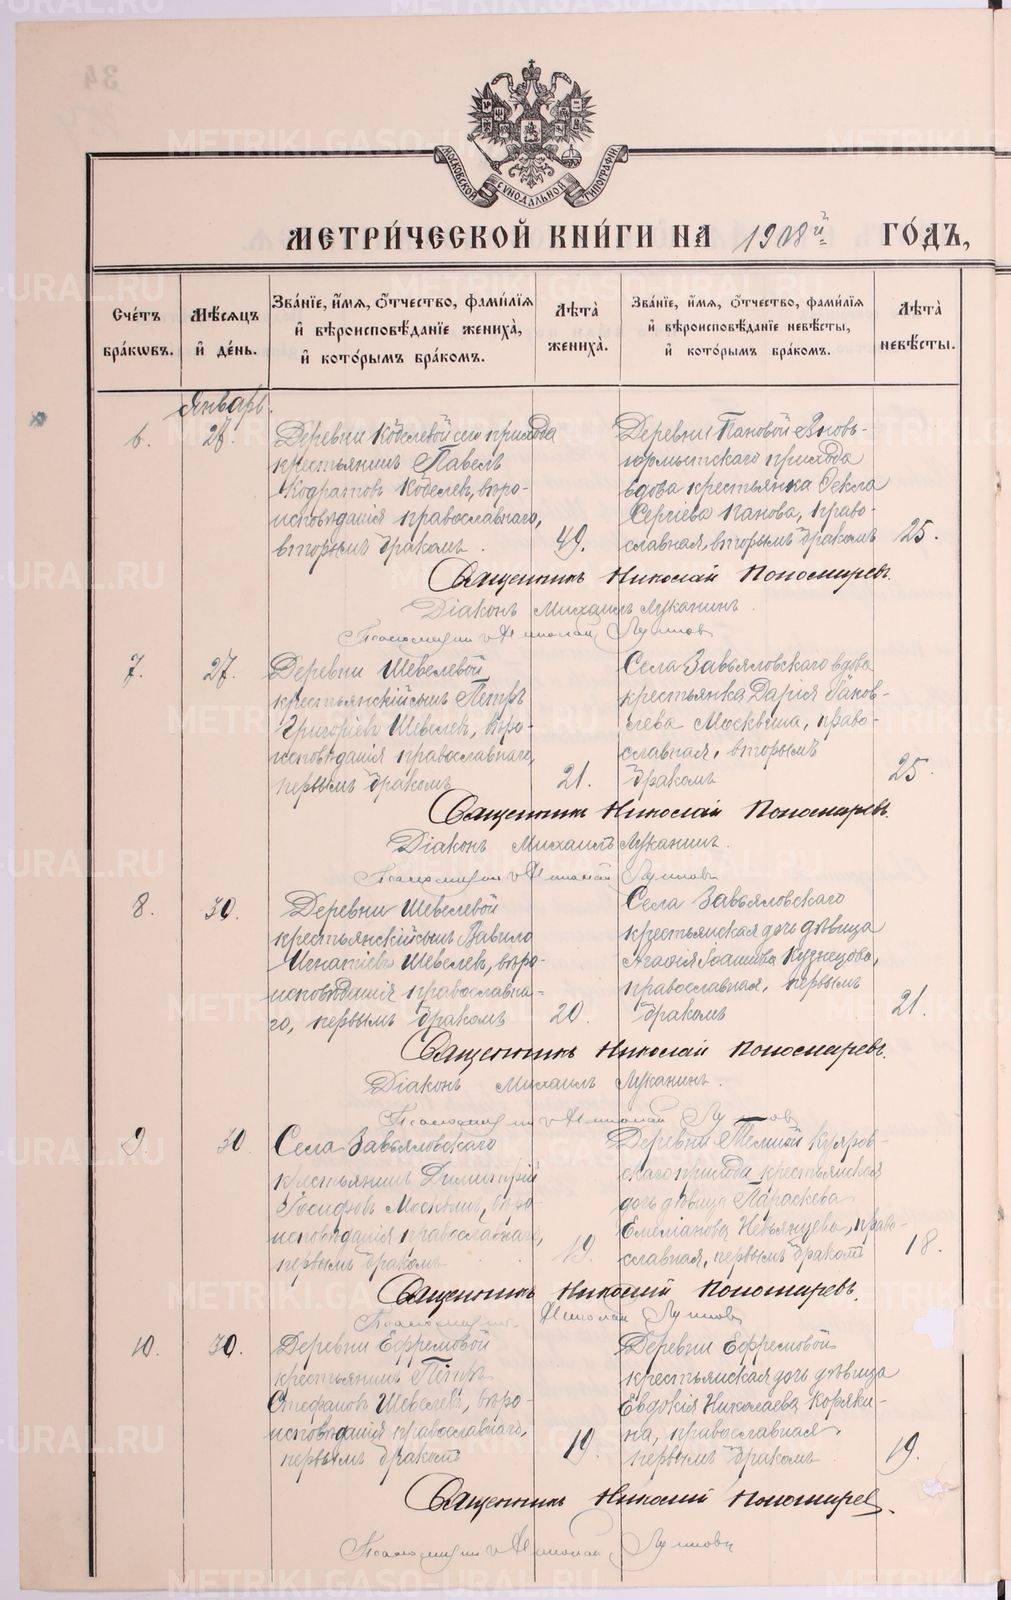 34
МОСКОВСКОЙ СѴНОДАЛЬНОЙ ТИПОГРАФІИ
МЕТРИ́ЧЕСКОЙ КНИ́ГИ НА 1908й ГО́ДЪ,
Сче́тъ бра́кωвъ.
Мѣ́сяцъ и҆ де́нь.
Зва́нїе, и҆́мѧ, ѻ҆́тчество, фами́лїѧ
и҆ вѣроисповѣ́данїе жениха̀,
и҆ кото́рымъ бра́комъ.
Лѣта̀ жениха̀.
Зва́нїе, и҆́мѧ, ѻ҆́тчество, фами́лїѧ
и҆ вѣроисповѣ́данїе невѣ́сты,
и҆ кото́рымъ бра́комъ.
Лѣта̀ невѣ́сты.
Январь.
6.
27.
Деревни Кобелевой сего прихода
крестьянинъ Павелъ
Кодратовъ Кобелев, вѣро-
исповѣданія православнаго,
вторымъ бракомъ.
49.
Деревни Пановой Вновь-
юрмытскаго прихода
вдова крестьянка Ѳекла
Сергіева Панова, право-
славная, вторымъ бракомъ
25.
Священникъ Николай Пономаревъ.
Діаконъ Михаилъ Луканинъ.
Николай
7.
27.
Деревни Шевелевой
крестьянскій сынъ Петръ
Григоріевъ Шевелевъ, вѣро-
исповѣданія православнаго,
первымъ бракомъ
21.
Села Завьяловскаго вдова
крестьянка Дарія Яков-
лева Москвина, право-
славная, вторымъ
бракомъ
25.
Священникъ Николай Пономаревъ.
Діаконъ Михаилъ Луканинъ.
Николай
8.
30.
Деревни Шевелевой
крестьянскій сынъ Вавило
Игнатіевъ Шевелевъ, вѣро-
исповѣданія православна-
го, первымъ бракомъ
20.
Села Завьяловскаго
крестьянская дочь дѣвица
Агафія Іоаннова Кузнецова,
православная, первымъ
бракомъ
21.
Священникъ Николай Пономаревъ.
Діаконъ Михаилъ Луканинъ.
Николай
9.
30.
Села Завьяловскаго
крестьянинъ Димитрій
Іосифовъ Москвинъ, вѣро-
исповѣданія православнаго,
первымъ бракомъ
19.
Деревни Темной Куяров-
скаго прихода крестьянская
дочь дѣвица Параскева
Емеліанова Невьянцева, право-
славная, первымъ бракомъ
18.
Священникъ Николай Пономаревъ.
Николай
10.
30.
Деревни Ефремовой
крестьянинъ Петръ
Стефановъ Шевелевъ, вѣро-
исповѣданія православнаго,
первымъ бракомъ
19.
Деревни Ефремовой
крестьянская дочь дѣвица
Евдокія Николаева Коряки-
на, православная,
первымъ бракомъ
19.
Священникъ Николай Пономаревъ.
Николай
METRIKI.GASO-URAL.RU